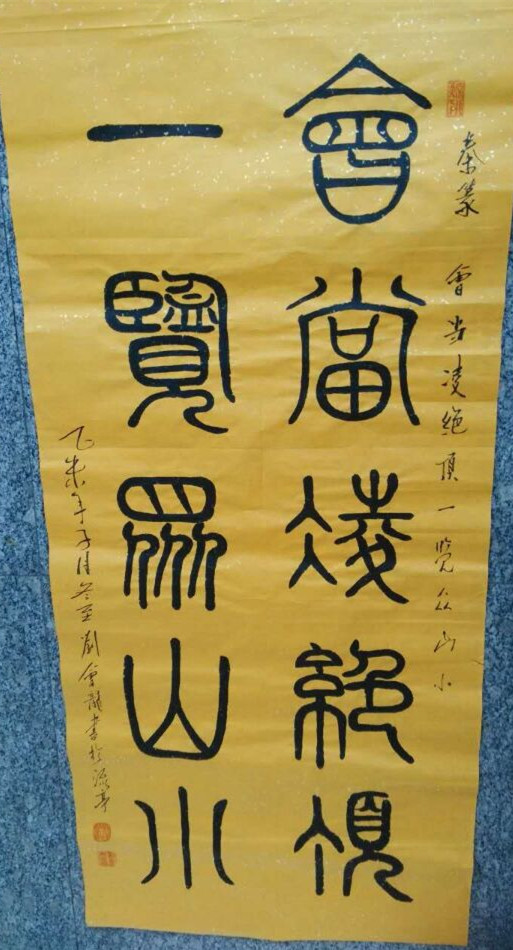 秦篆 會当凌絕頂一览众山小
會當凌絕頂
一覽眾山小
乙未年子月冬至劉會龍書於流亭